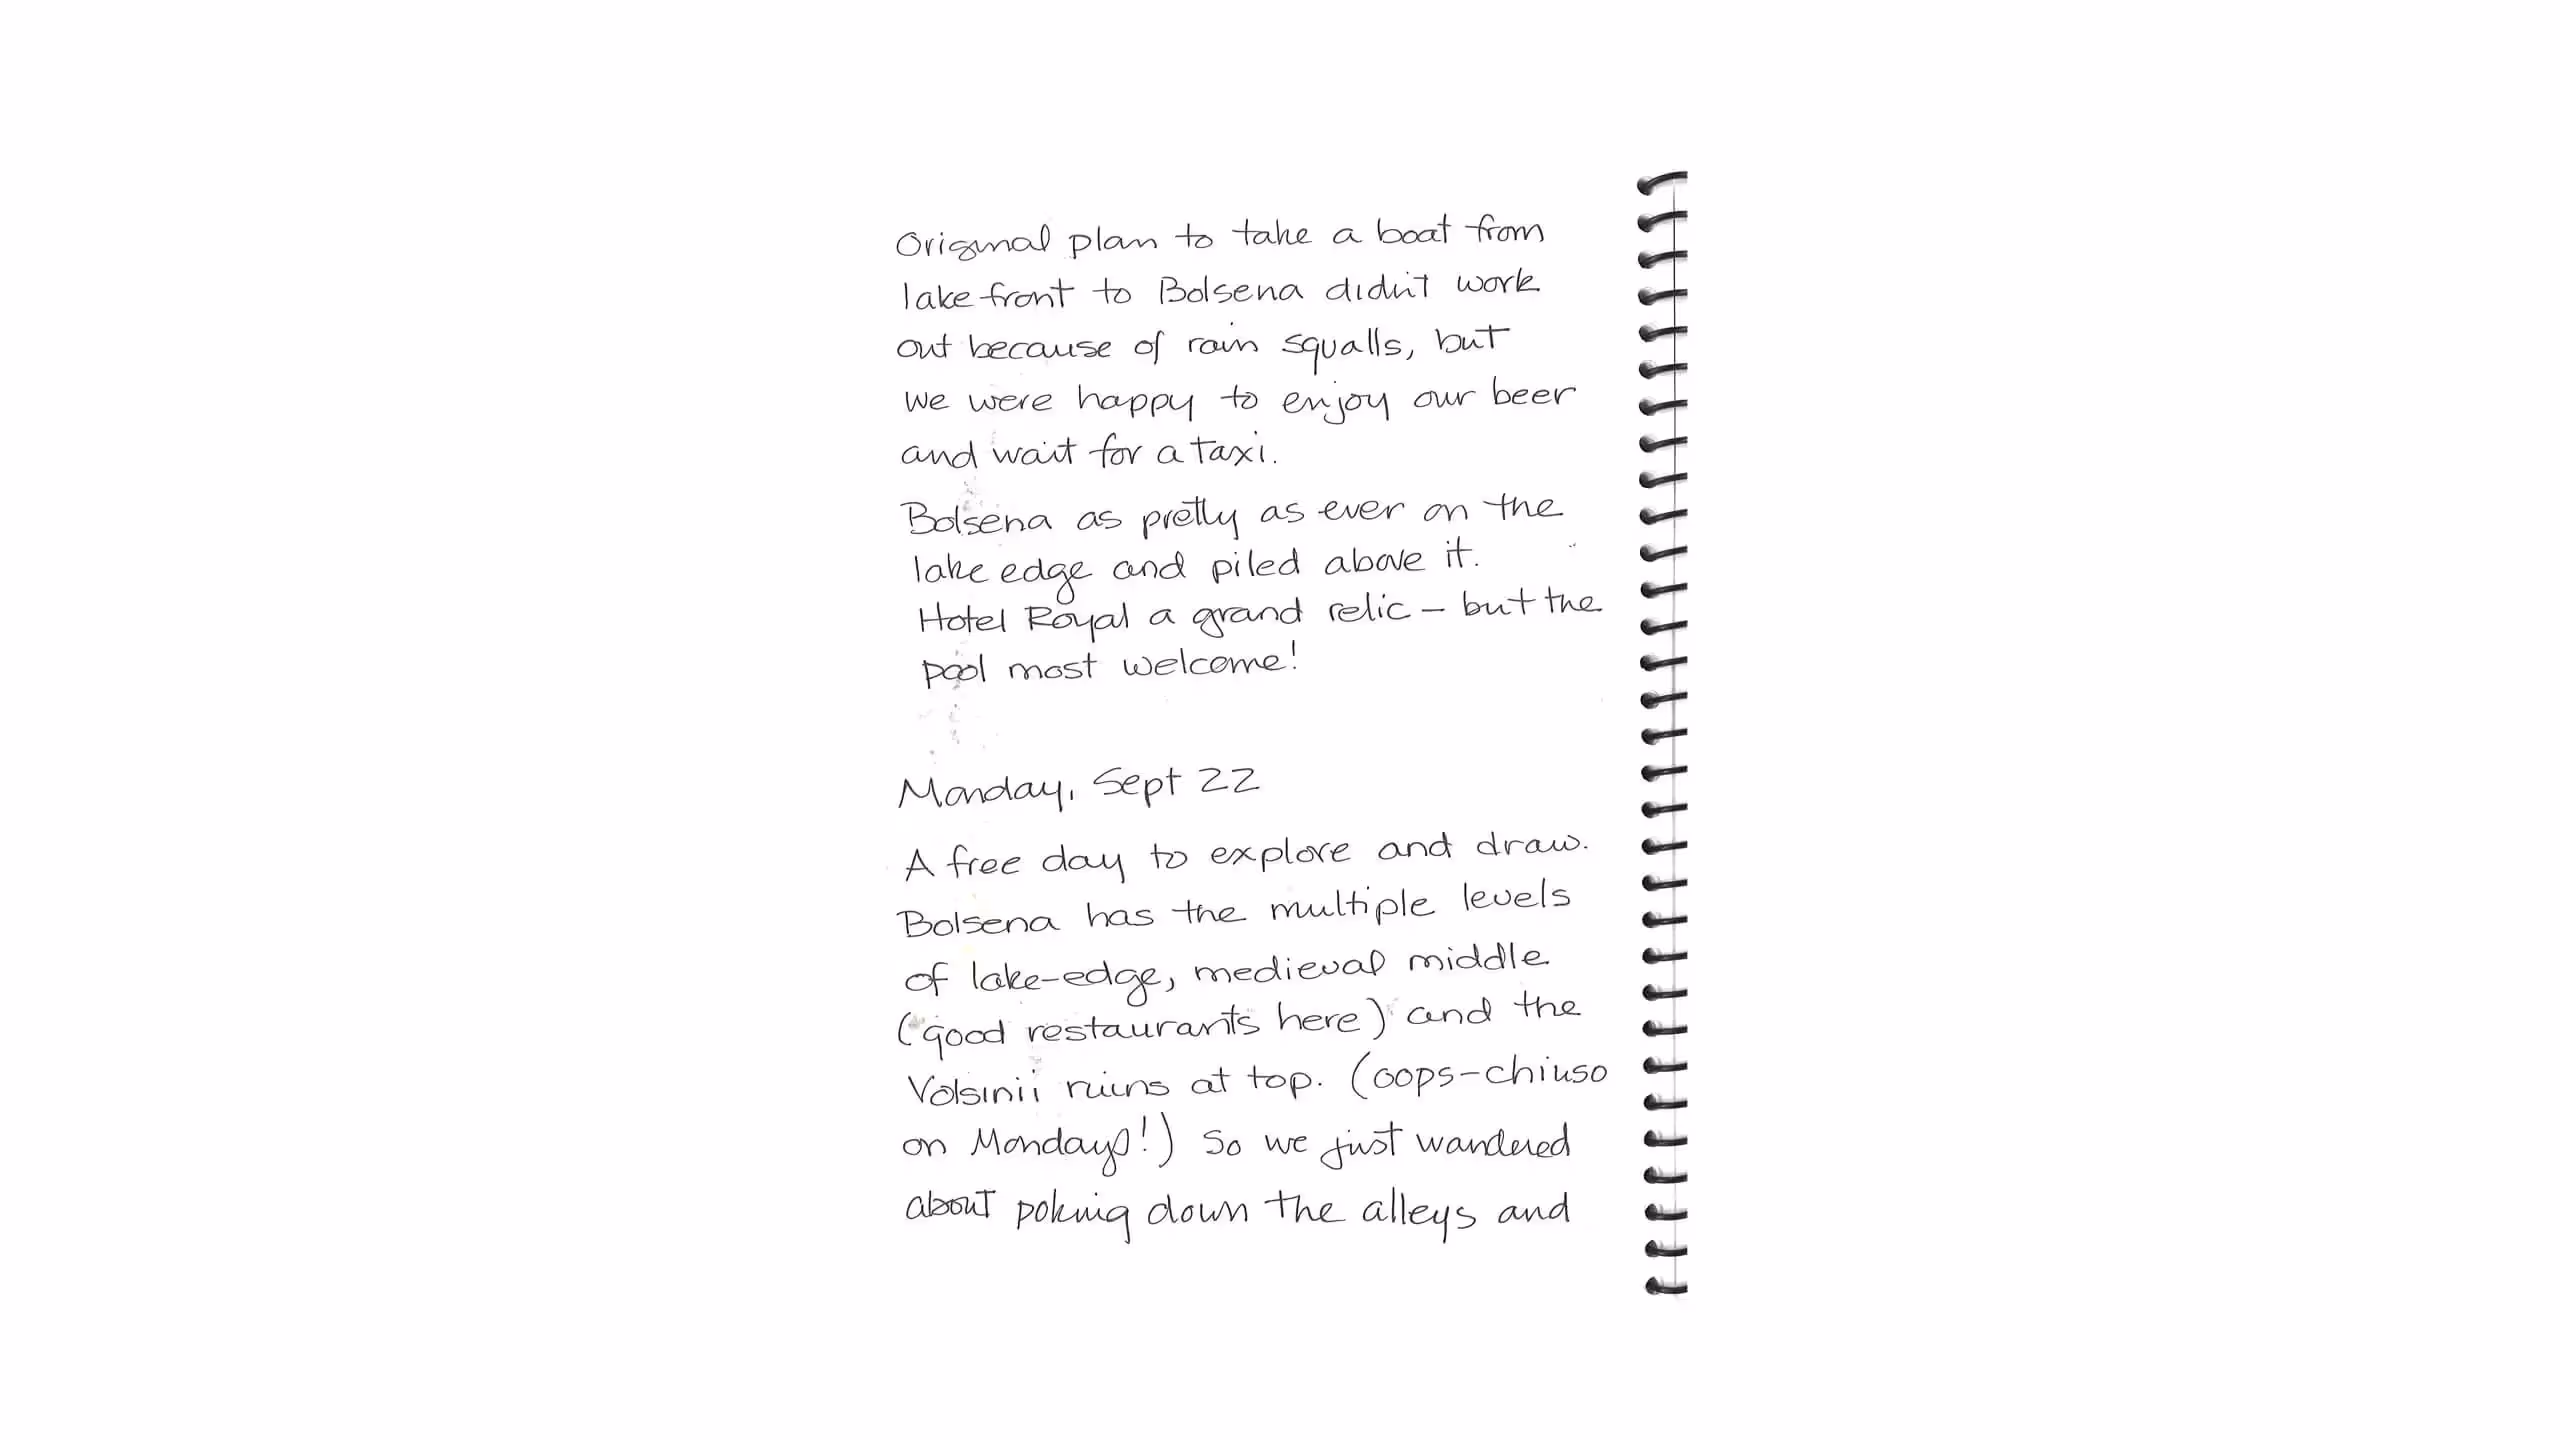 Original plan to take a boat from
lake front to Bolsena didn't work
out because of rain squalls, but
we were happy to enjoy our beer
and wait for a taxi.
Bolsena as pretty as ever on the
lake edge and piled above it.
Hotel Royal a grand relic – but the
pool most welcome!
Monday, Sept 22
A free day to explore and draw.
Bolsena has the multiple levels
of lake-edge, medieval middle
(good restaurants here) and the
Volsinii ruins at top. (oops-chiuso
on Mondays!) So we just wandered
about poking down the alleys and